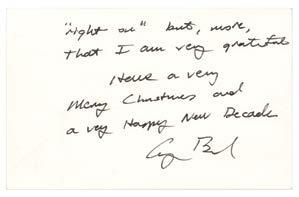 "right on" but, more,
that I am very grateful
Have a very
Merry Christmas and
a very Happy New Decade